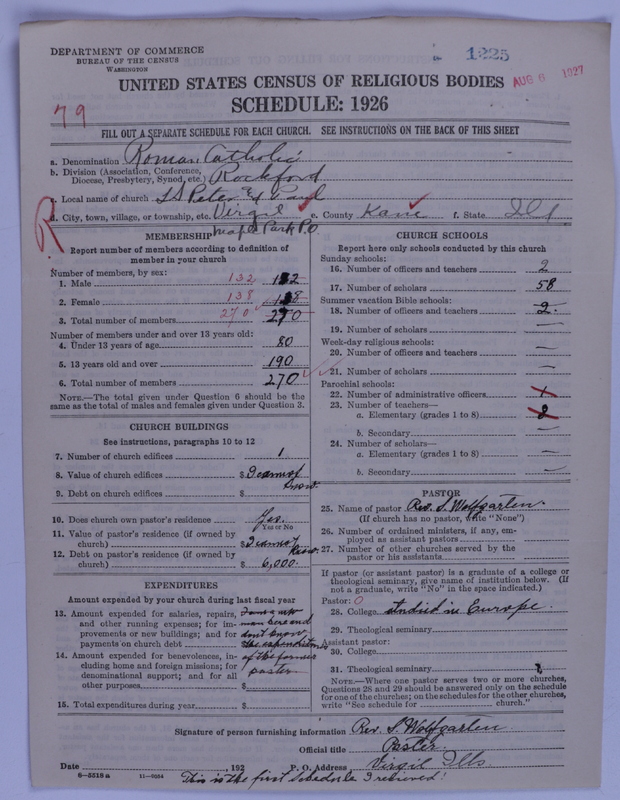 DEPARTMENT OF COMMERCE
BUREAU OF THE CENSUS
WASHINGTON
1225
AUG 6 1927
UNITED STATES CENSUS OF RELIGIOUS BODIES
SCHEDULE: 1926
79
FILL OUT A SEPARATE SCHEDULE FOR EACH CHURCH. SEE INSTRUCTIONS ON THE BACK OF THIS SHEET
a. Denomination Roman Catholic
b. Division (Association, Conference, Diocese, Presbytery, Synod, etc.) Rockford
c. Local name of church SS Peter & Paul
d. City, town, village, or township, etc. Virgil e. County Kane f. State Ill
Maple Park P.O.
R
MEMBERSHIP
Report number of members according to definition of member in your church
Number of members, by sex:
1. Male 132 132
2. Female 138 138
3. Total number of members 270 270
Number of members under and over 13 years old:
4. Under 13 years of age 80
5. 13 years old and over 190
6. Total number of members 270
NOTE.—The total given under Question 6 should be the same as the total of males and females given under Question 3.
CHURCH BUILDINGS
See instructions, paragraphs 10 to 12
7. Number of church edifices 1
8. Value of church edifices $ I cannot know.
9. Debt on church edifices $
10. Does church own pastor's residence Yes.
Yes or No
11. Value of pastor's residence (if owned by church) $ I cannot know.
12. Debt on pastor's residence (if owned by church) $ 6,000.
EXPENDITURES
Amount expended by your church during last fiscal year
13. Amount expended for salaries, repairs, and other running expenses; for improvements or new buildings; and for payments on church debt
I am a new man here and don't know the expenditures of the former pastor
14. Amount expended for benevolences, including home and foreign missions; for denominational support; and for all other purposes $
15. Total expenditures during year $
CHURCH SCHOOLS
Report here only schools conducted by this church
Sunday schools:
16. Number of officers and teachers 2
17. Number of scholars 58
Summer vacation Bible schools:
18. Number of officers and teachers 2.
19. Number of scholars —
Week-day religious schools:
20. Number of officers and teachers —
21. Number of scholars —
Parochial schools:
22. Number of administrative officers 1
23. Number of teachers—
a. Elementary (grades 1 to 8) 2
b. Secondary —
24. Number of scholars—
a. Elementary (grades 1 to 8) —
b. Secondary —
PASTOR
25. Name of pastor Rev. S. Wolfgarten
(If church has no pastor, write "None")
26. Number of ordained ministers, if any, employed as assistant pastors
27. Number of other churches served by the pastor or his assistants
If pastor (or assistant pastor) is a graduate of a college or theological seminary, give name of institution below. (If not a graduate, write "No" in the space indicated.)
Pastor: O
28. College studied in Europe.
29. Theological seminary
Assistant pastor:
30. College
31. Theological seminary
NOTE.—Where one pastor serves two or more churches, Questions 28 and 29 should be answered only on the schedule for one of the churches; on the schedules for the other churches, write "See schedule for church."
Signature of person furnishing information Rev. S. Wolfgarten
Official title Pastor
Date , 192 P. O. Address Virgil Ills.
6—5518a 11—9264
This is the first Schedule I retrieved!